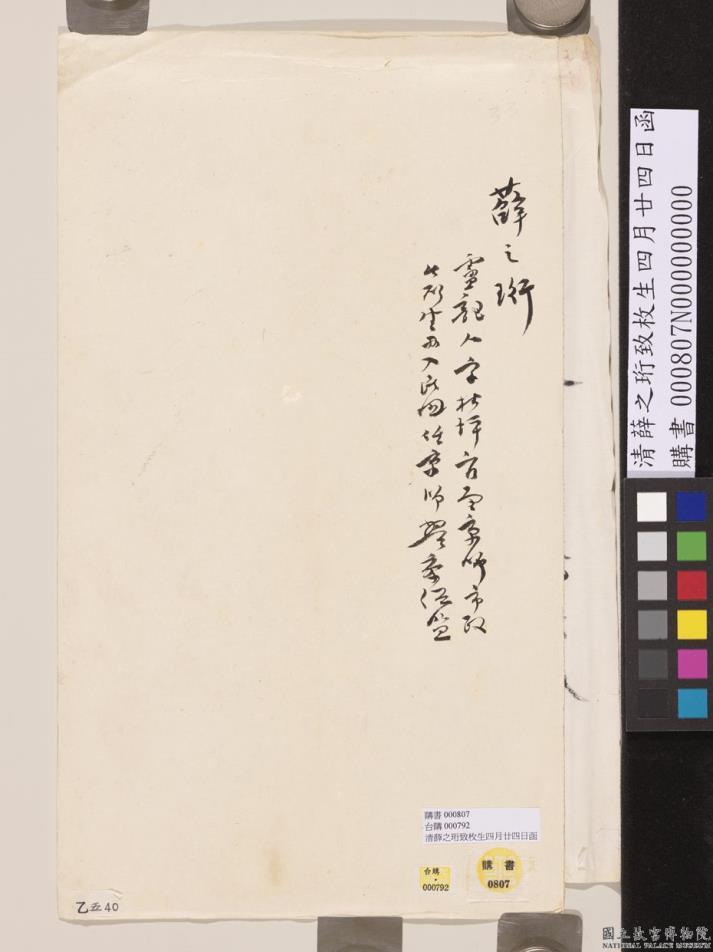 薛之珩
人字松坪官至京師市政
入民國任京師警察總監
清薛之珩致枚生四月廿四日函
購書 000807N000000000
購書 000807
台購 000792
清薛之珩致枚生四月廿四日函
台購
000792
購書
0807
乙五40
33
國立故宮博物院
NATIONAL PALACE MUSEUM